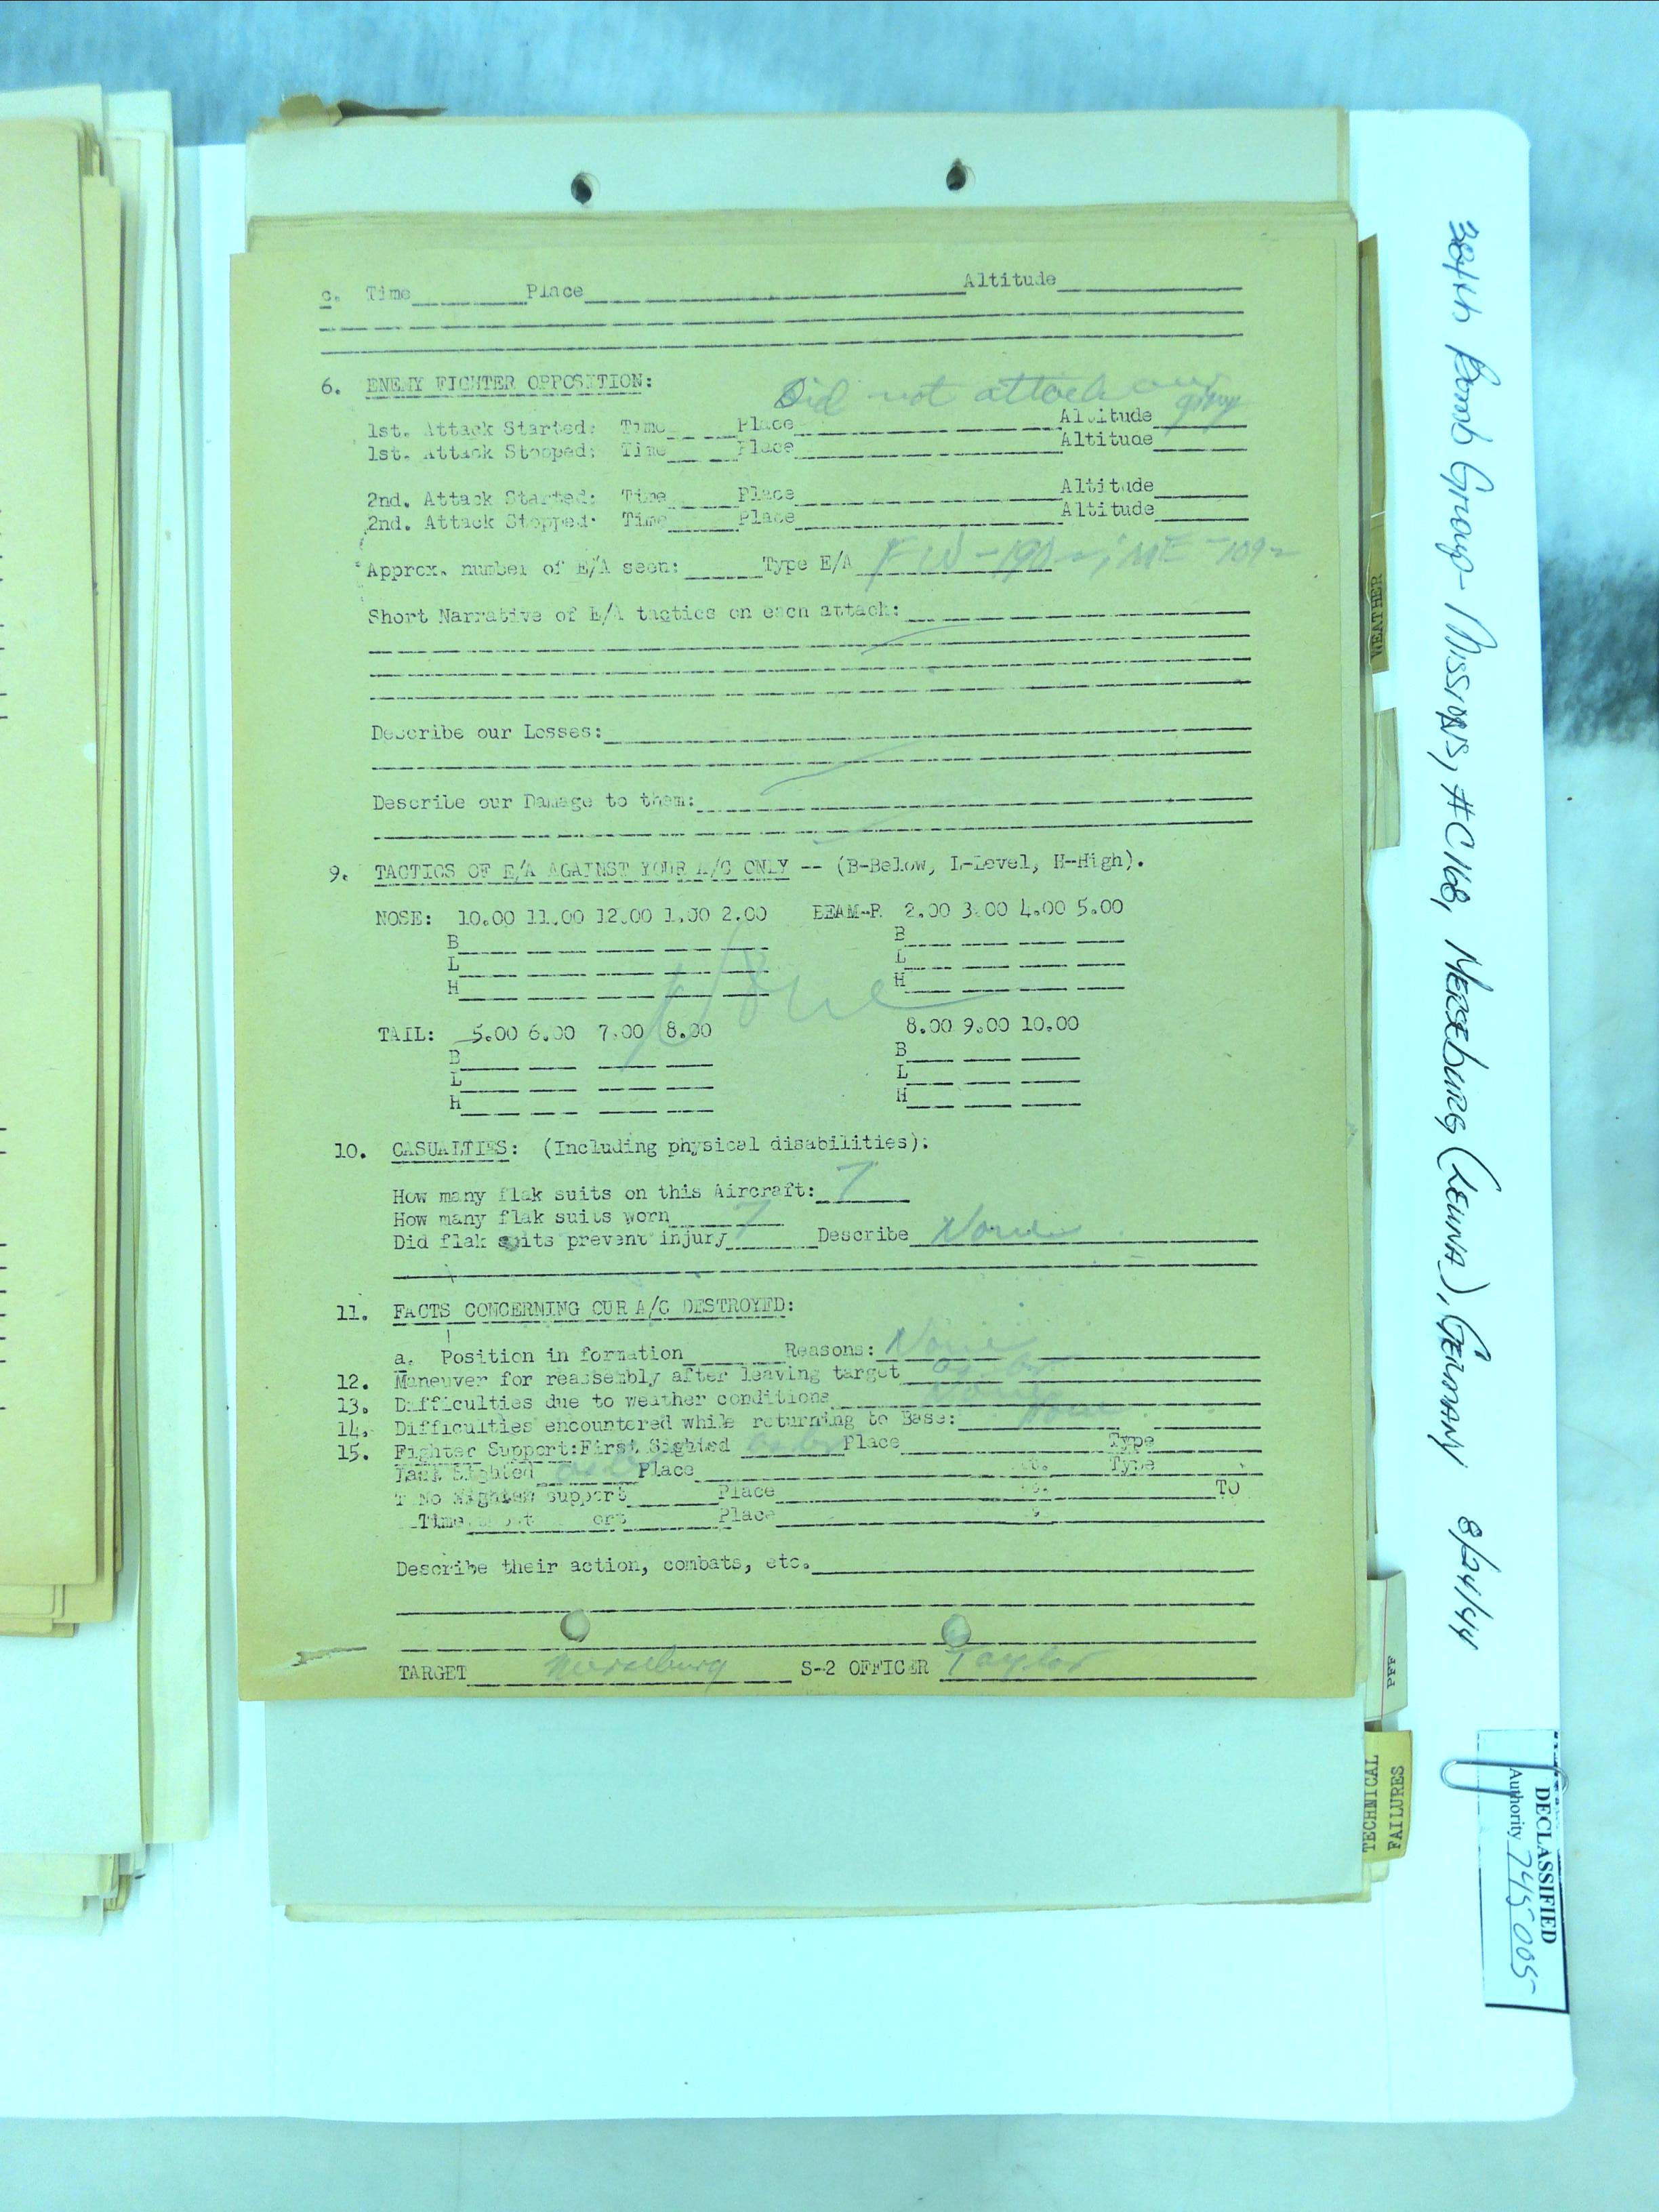 c. Time Place Altitude
6. ENEMY FIGHTER OPPOSITION:
Did not attack our group
1st. Attack Started: Time Place Altitude
1st. Attack Stopped: Time Place Altitude
2nd. Attack Started: Time Place Altitude
2nd. Attack Stopped: Time Place Altitude
Approx. number of E/A seen: Type E/A FW-190s; ME-109s
Short Narrative of E/A tactics on each attack:
Describe our Losses:
Describe our Damage to them:
9. TACTICS OF E/A AGAINST YOUR A/C ONLY -- (B-Below, L-Level, H-High).
NOSE: 10.00 11.00 12.00 1.00 2.00 BEAM-R 2.00 3.00 4.00 5.00
B B
L L
H H
None
TAIL: 5.00 6.00 7.00 8.00 8.00 9.00 10.00
B B
L L
H H
10. CASUALTIES: (Including physical disabilities):
How many flak suits on this Aircraft: 7
How many flak suits worn 7
Did flak suits prevent injury Describe None
11. FACTS CONCERNING OUR A/C DESTROYED:
a. Position in formation Reasons: None
12. Maneuver for reassembly after leaving target
13. Difficulties due to weather conditions None
14. Difficulties encountered while returning to Base: None
15. Fighter Support: First Sighted Place Type
Last Sighted Place Type
No Fighter support Place TO
Time Place
Describe their action, combats, etc.
TARGET Merseburg S-2 OFFICER Taylor
WEATHER
PFF
TECHNICAL
FAILURES
384th Bomb Group - Missions, #C168, MERSEBURG (LEUNA), GERMANY 8/24/44
DECLASSIFIED
Authority 745005